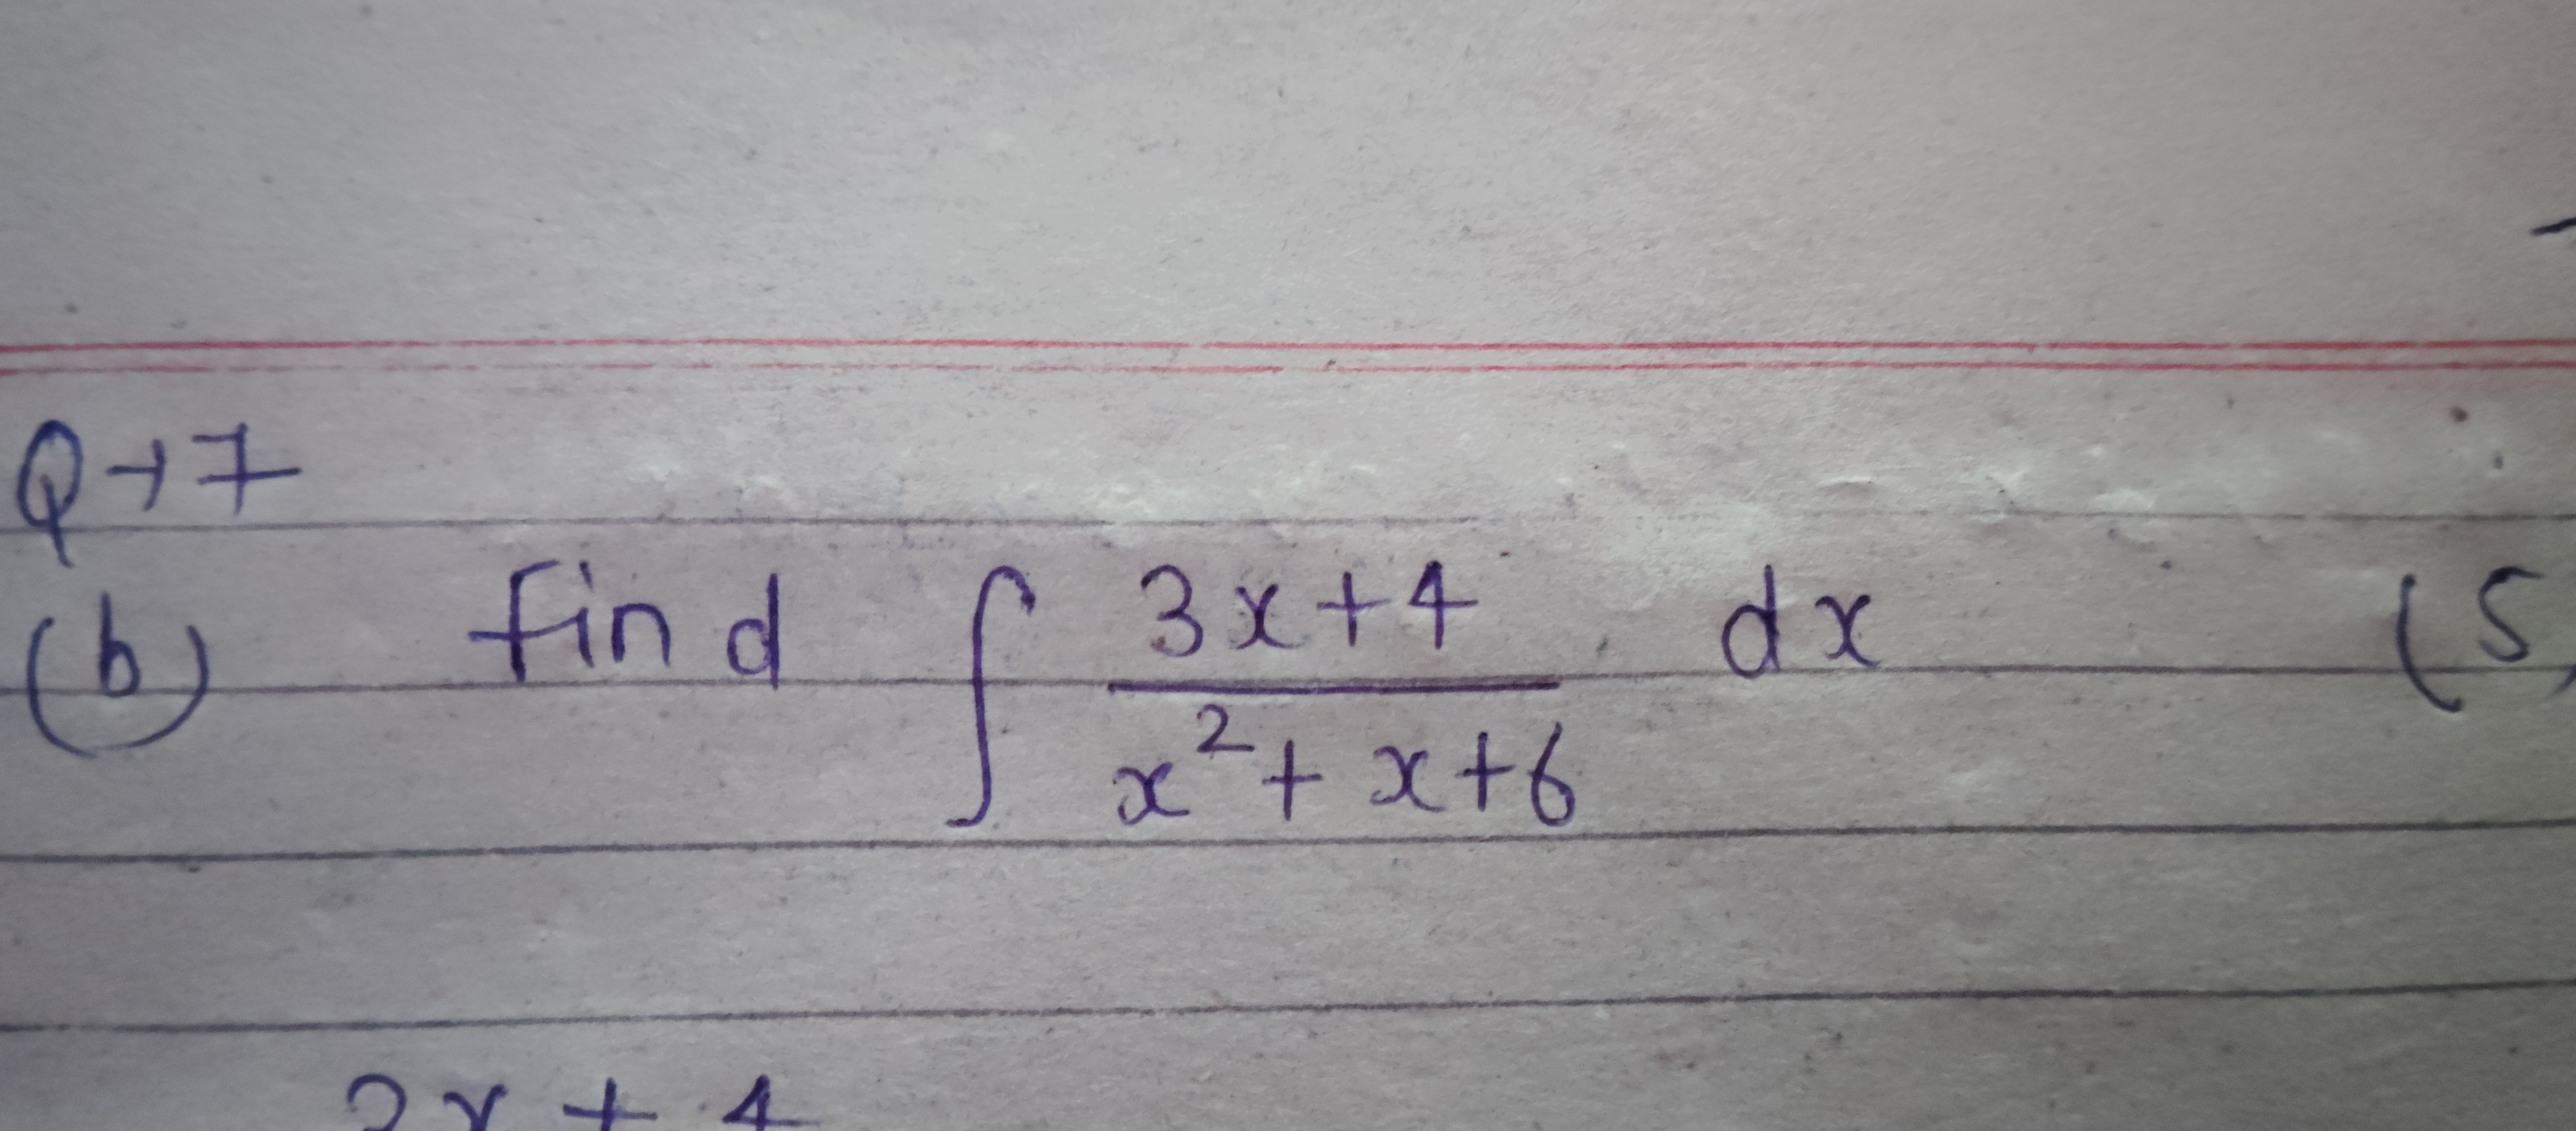 Q→7
(b) find ∫ 3x+4 / x²+x+6 dx (5)
3x + 4